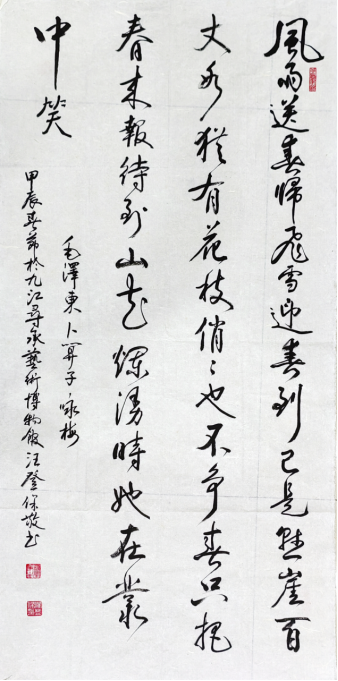 風雨送春歸飛雪迎春到已是懸崖百
丈冰猶有花枝俏俏也不争春只把
春来報待到山花爛漫時她在叢
中笑
毛澤東卜算子咏梅
甲辰春節於九江尋永藝術博物館汪登保敬书